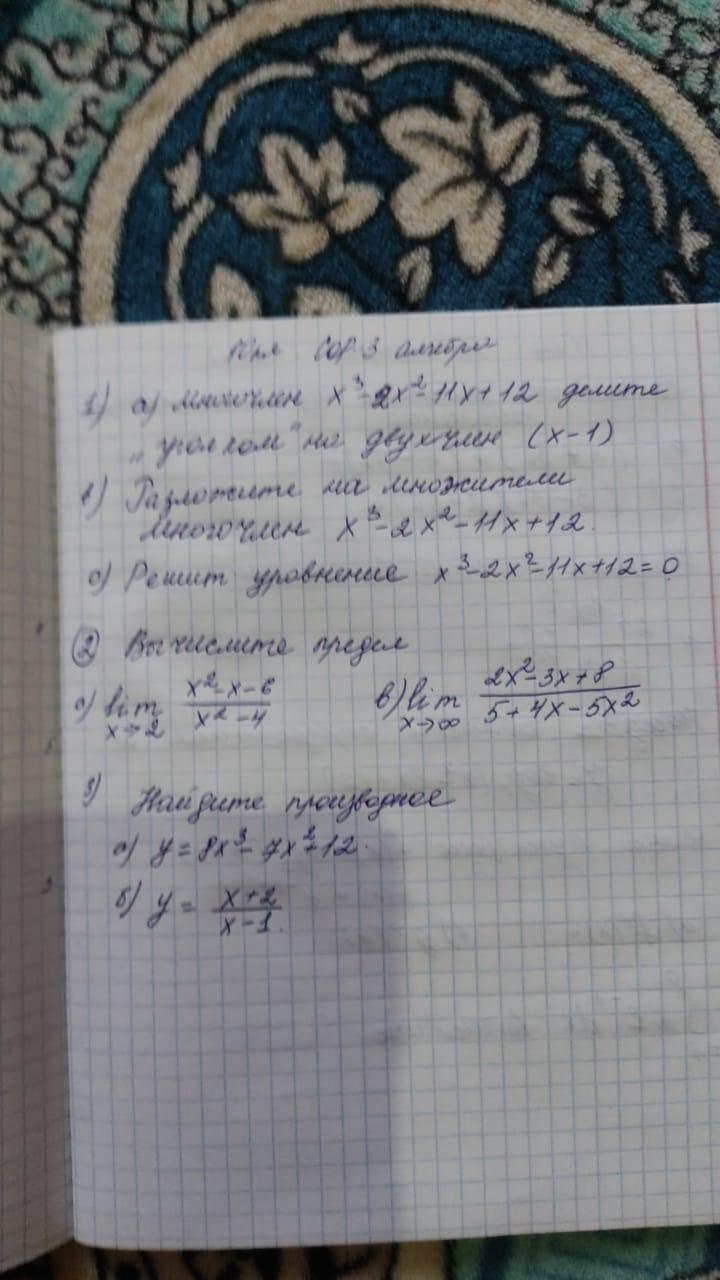 10кл СОР 3 алгебра
1) а) многочлен x³-2x²-11x+12 делите
„уголком" на двухчлен (x-1)
в) Разложите на множители
многочлен x³-2x²-11x+12.
с) Решит уровнение x³-2x²-11x+12=0
② Вычислите предел
а) lim x→2 (x²-x-6)/(x²-4) в) lim x→∞ (2x²-3x+8)/(5+4x-5x²)
3) Найдите производное
а) y=8x³-7x²+12.
б) y= (x+2)/(x-1).